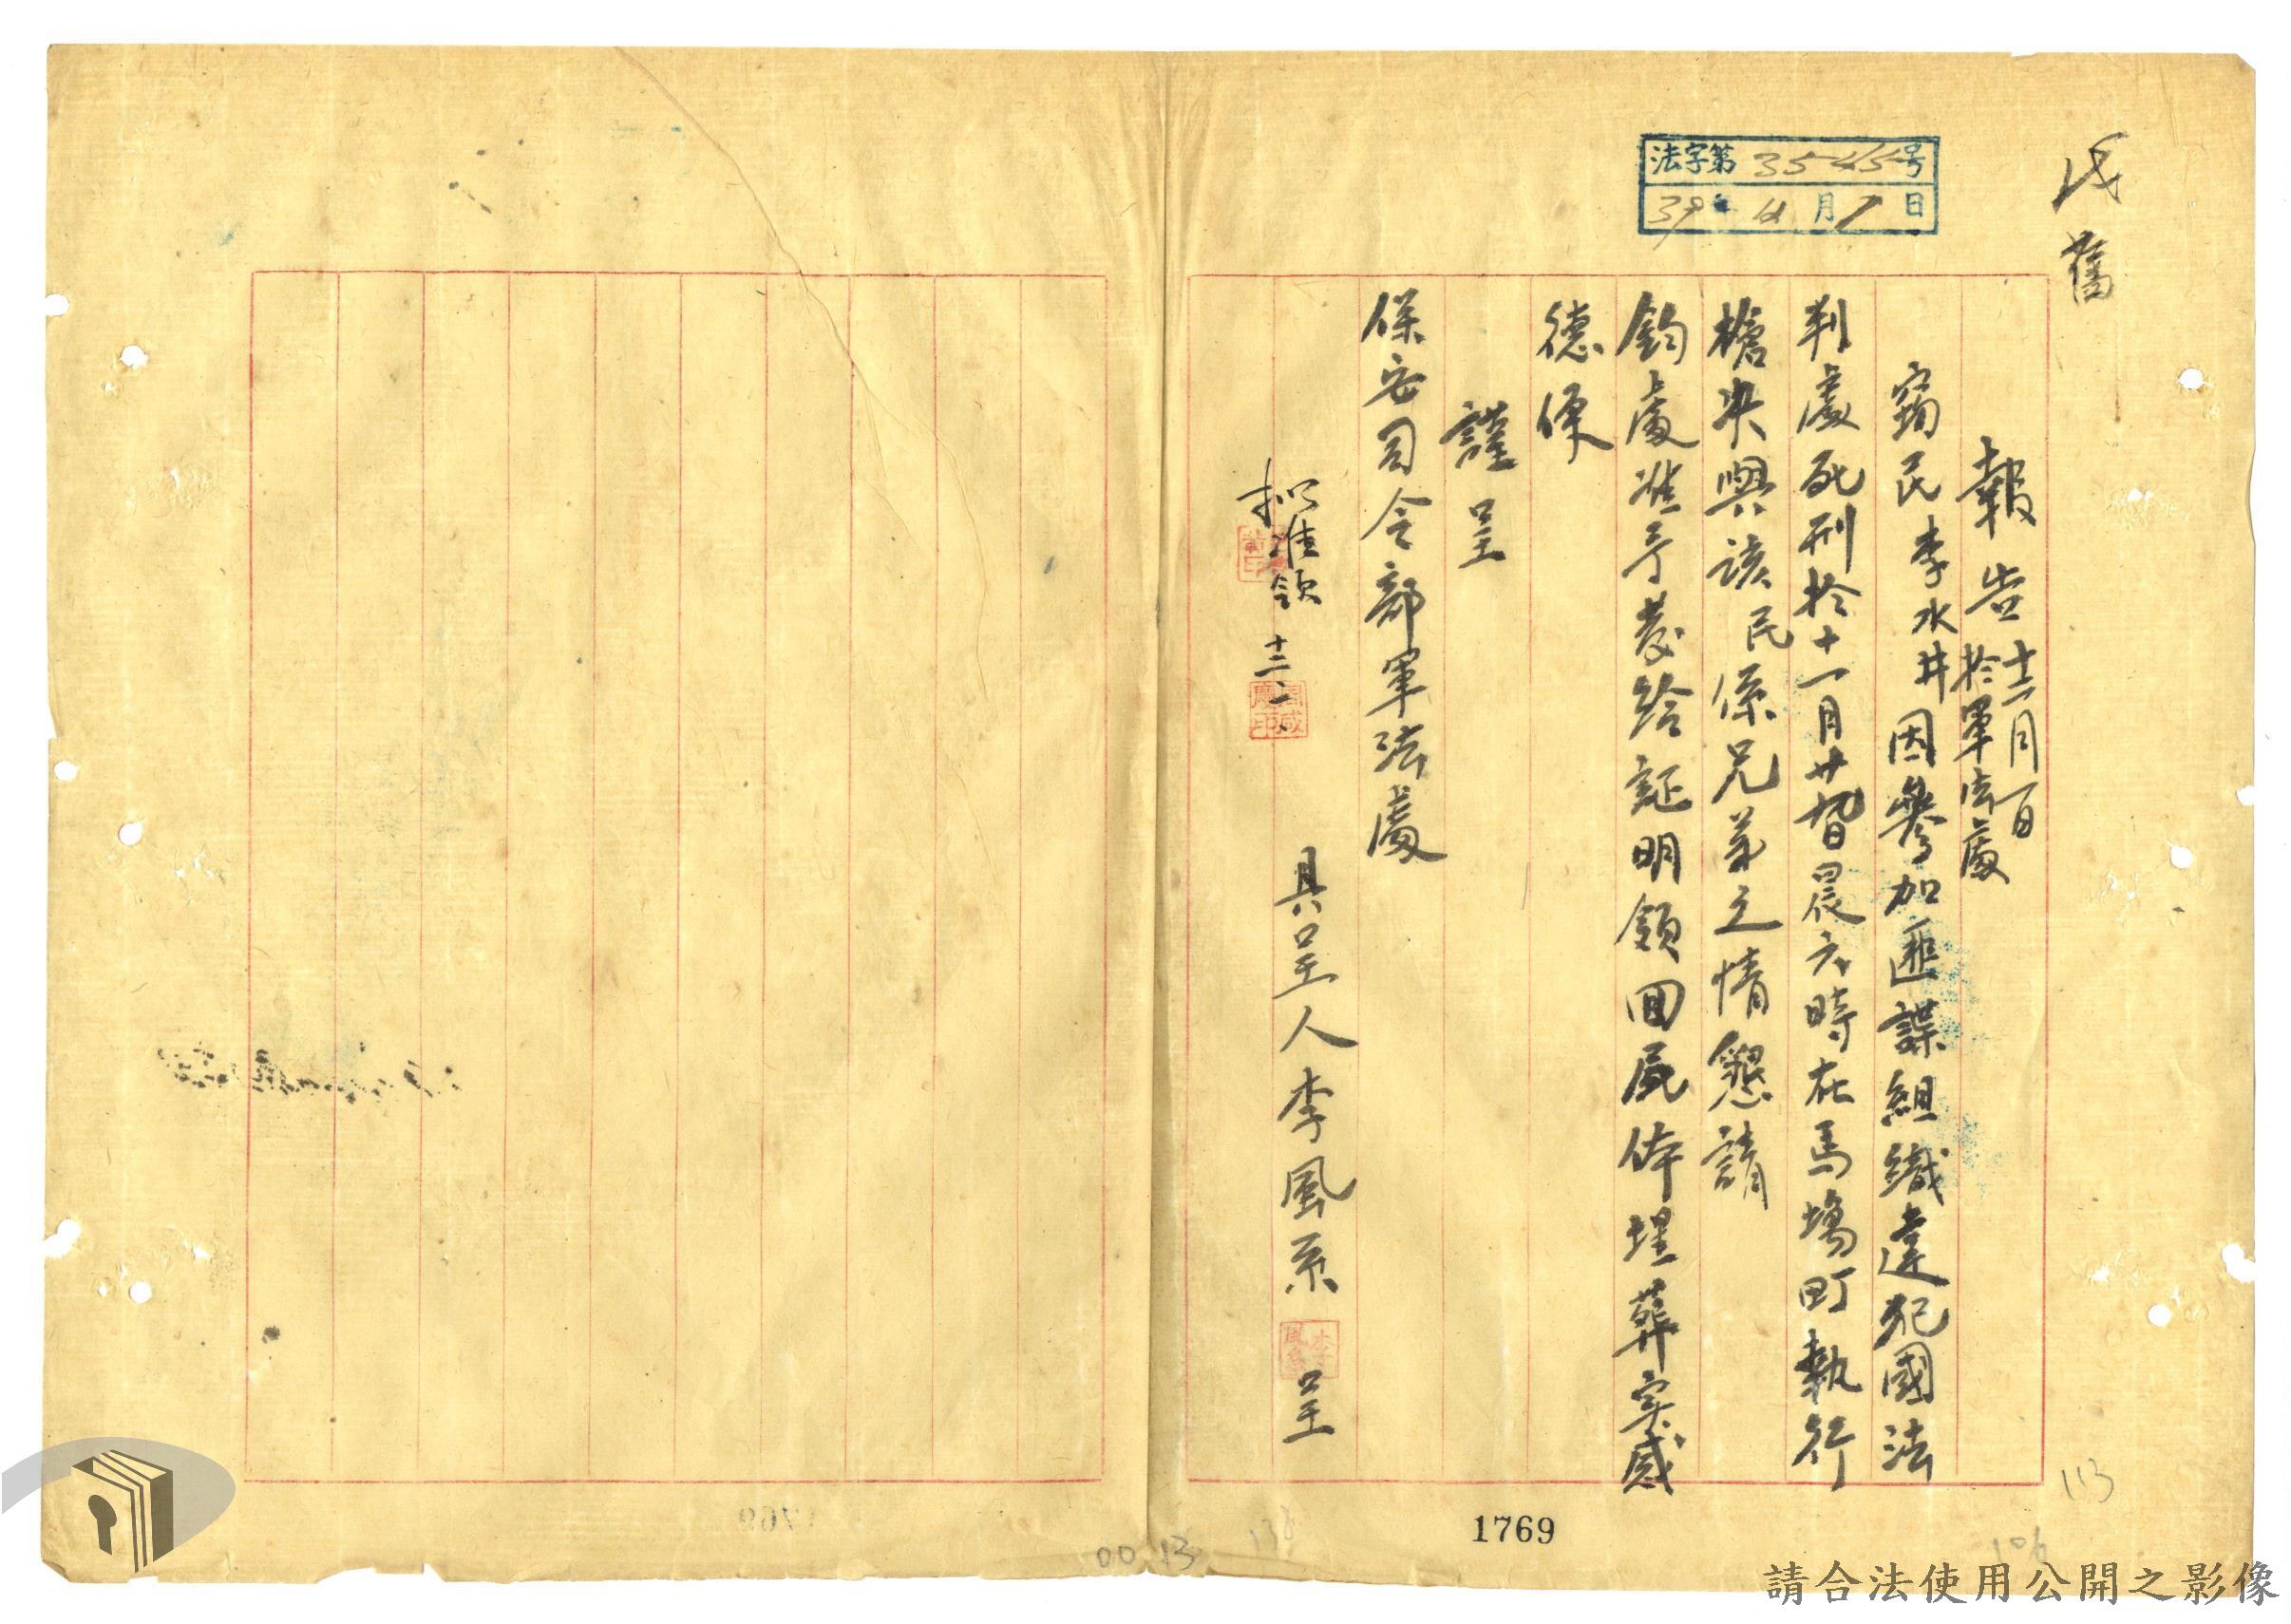 法字第3545号
39年12月1日
舊
報告 十二月一日 於軍法處
竊民李水井因參加匪諜組織違犯國法
判處死刑於十一月廿九日晨六時在馬場町執行
槍決與該民係兄弟之情懇請
鈞處准予發給証明領回屍体埋葬实感
德便
謹呈
保安司令部軍法處
擬准領 十二、一、
具呈人李風系 呈
1769
113
106
138
00 13
請合法使用公開之影像